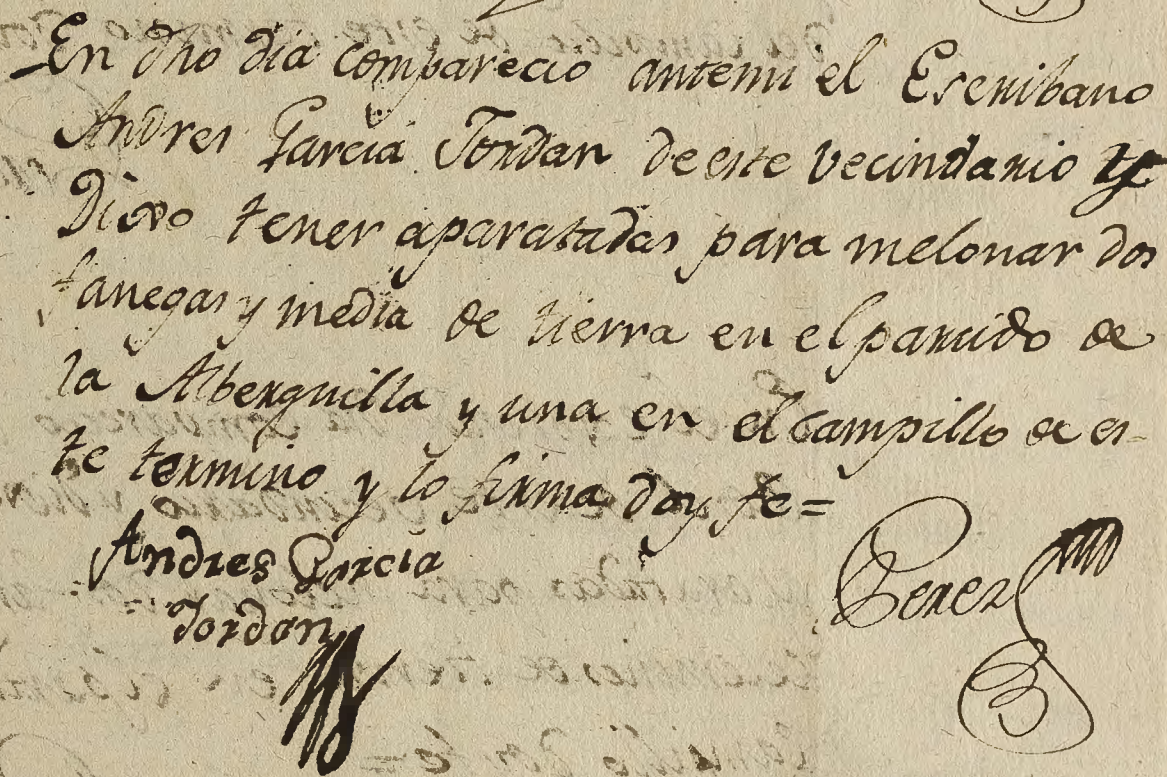 En dho dia comparecio antemi el Escribano
Andres Garcia Jordan de este Vecindario y
Dixo tener aparatadas para melonar dos
fanegas y media de tierra en el partido de
la Alberquilla y una en el campillo de es-
te termino y lo firma doy fe=
Andres Garcia
Jordan
Perez